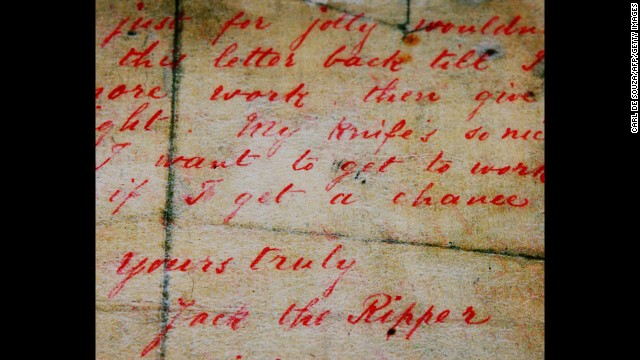 just for jolly wouldn
this letter back till I
more work then give
ght. My knife's so nic
I want to get to work
if I get a chance
Yours truly
Jack the Ripper
CARL DE SOUZA/AFP/GETTY IMAGES